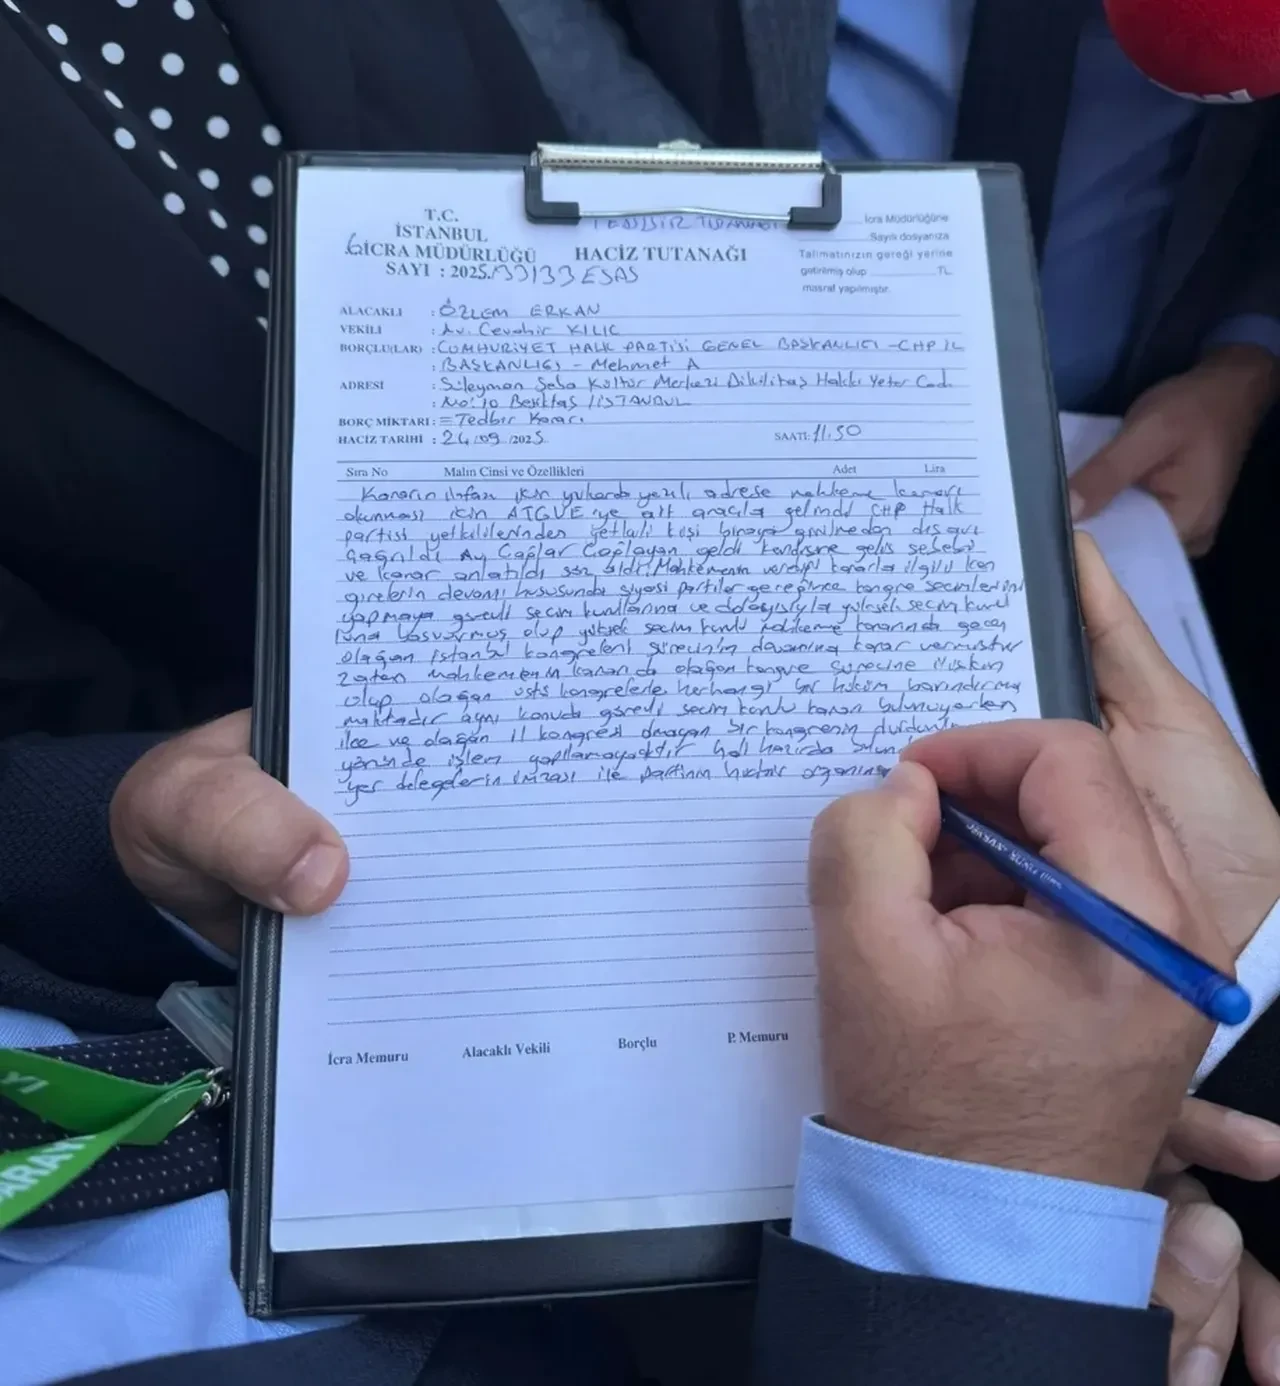 T.C.
İSTANBUL
6 İCRA MÜDÜRLÜĞÜ
SAYI : 2025/33133 ESAS
TEDBİR TUTANAĞI
HACİZ TUTANAĞI
İcra Müdürlüğüne
Sayılı dosyanıza
Talimatınızın gereği yerine
getirilmiş olup TL.
masraf yapılmıştır.
ALACAKLI : ÖZLEM ERKAN
VEKİLİ : Av. Cevahir KILIÇ
BORÇLU(LAR) : CUMHURİYET HALK PARTİSİ GENEL BAŞKANLIĞI - CHP İL
: BAŞKANLIĞI - Mehmet A
ADRESİ : Süleyman Seba Kültür Merkezi Dikilitaş Hakkı Yeten Cad.
: No:10 Beşiktaş / İSTANBUL
BORÇ MİKTARI : = Tedbir Kararı
HACİZ TARİHİ : 24/09/2025 SAATİ: 11.50
Sıra No Malın Cinsi ve Özellikleri Adet Lira
Kararın infazı için yukarıda yazılı adrese mahkeme kararı
okunması için ait araçla gelindi CHP Halk
partisi yetkililerinden yetkili kişi binaya girilmeden dışarı
çağrıldı Av Çağlar Çağlayan geldi kendisine geliş sebebi
ve karar anlatıldı söz aldı; Mahkemenin verdiği kararla ilgili kon
grelerin devamı hususunda siyasi partiler gereğince kongre seçimlerini
yapmaya görevli seçim kurullarına ve dolayısıyla yüksek seçim kuru
luna başvurmuş olup yüksek seçim kurulu mahkeme kararında geçen
olağan İstanbul kongreleri sürecinin devamına karar vermiştir
zaten mahkemenin kararı da olağan kongre sürecine ilişkin
olup olağan üstü kongrelerle herhangi bir hüküm barındırma
maktadır aynı konuda görevli seçim kurulu kararı bulunuyorken
ilçe ve olağan il kongresi olmayan bir kongrenin
yönünde işlem yapılamayacaktır hali hazırda
yer delegelerin imzası ile partinin hiçbir
İcra Memuru Alacaklı Vekili Borçlu P. Memuru